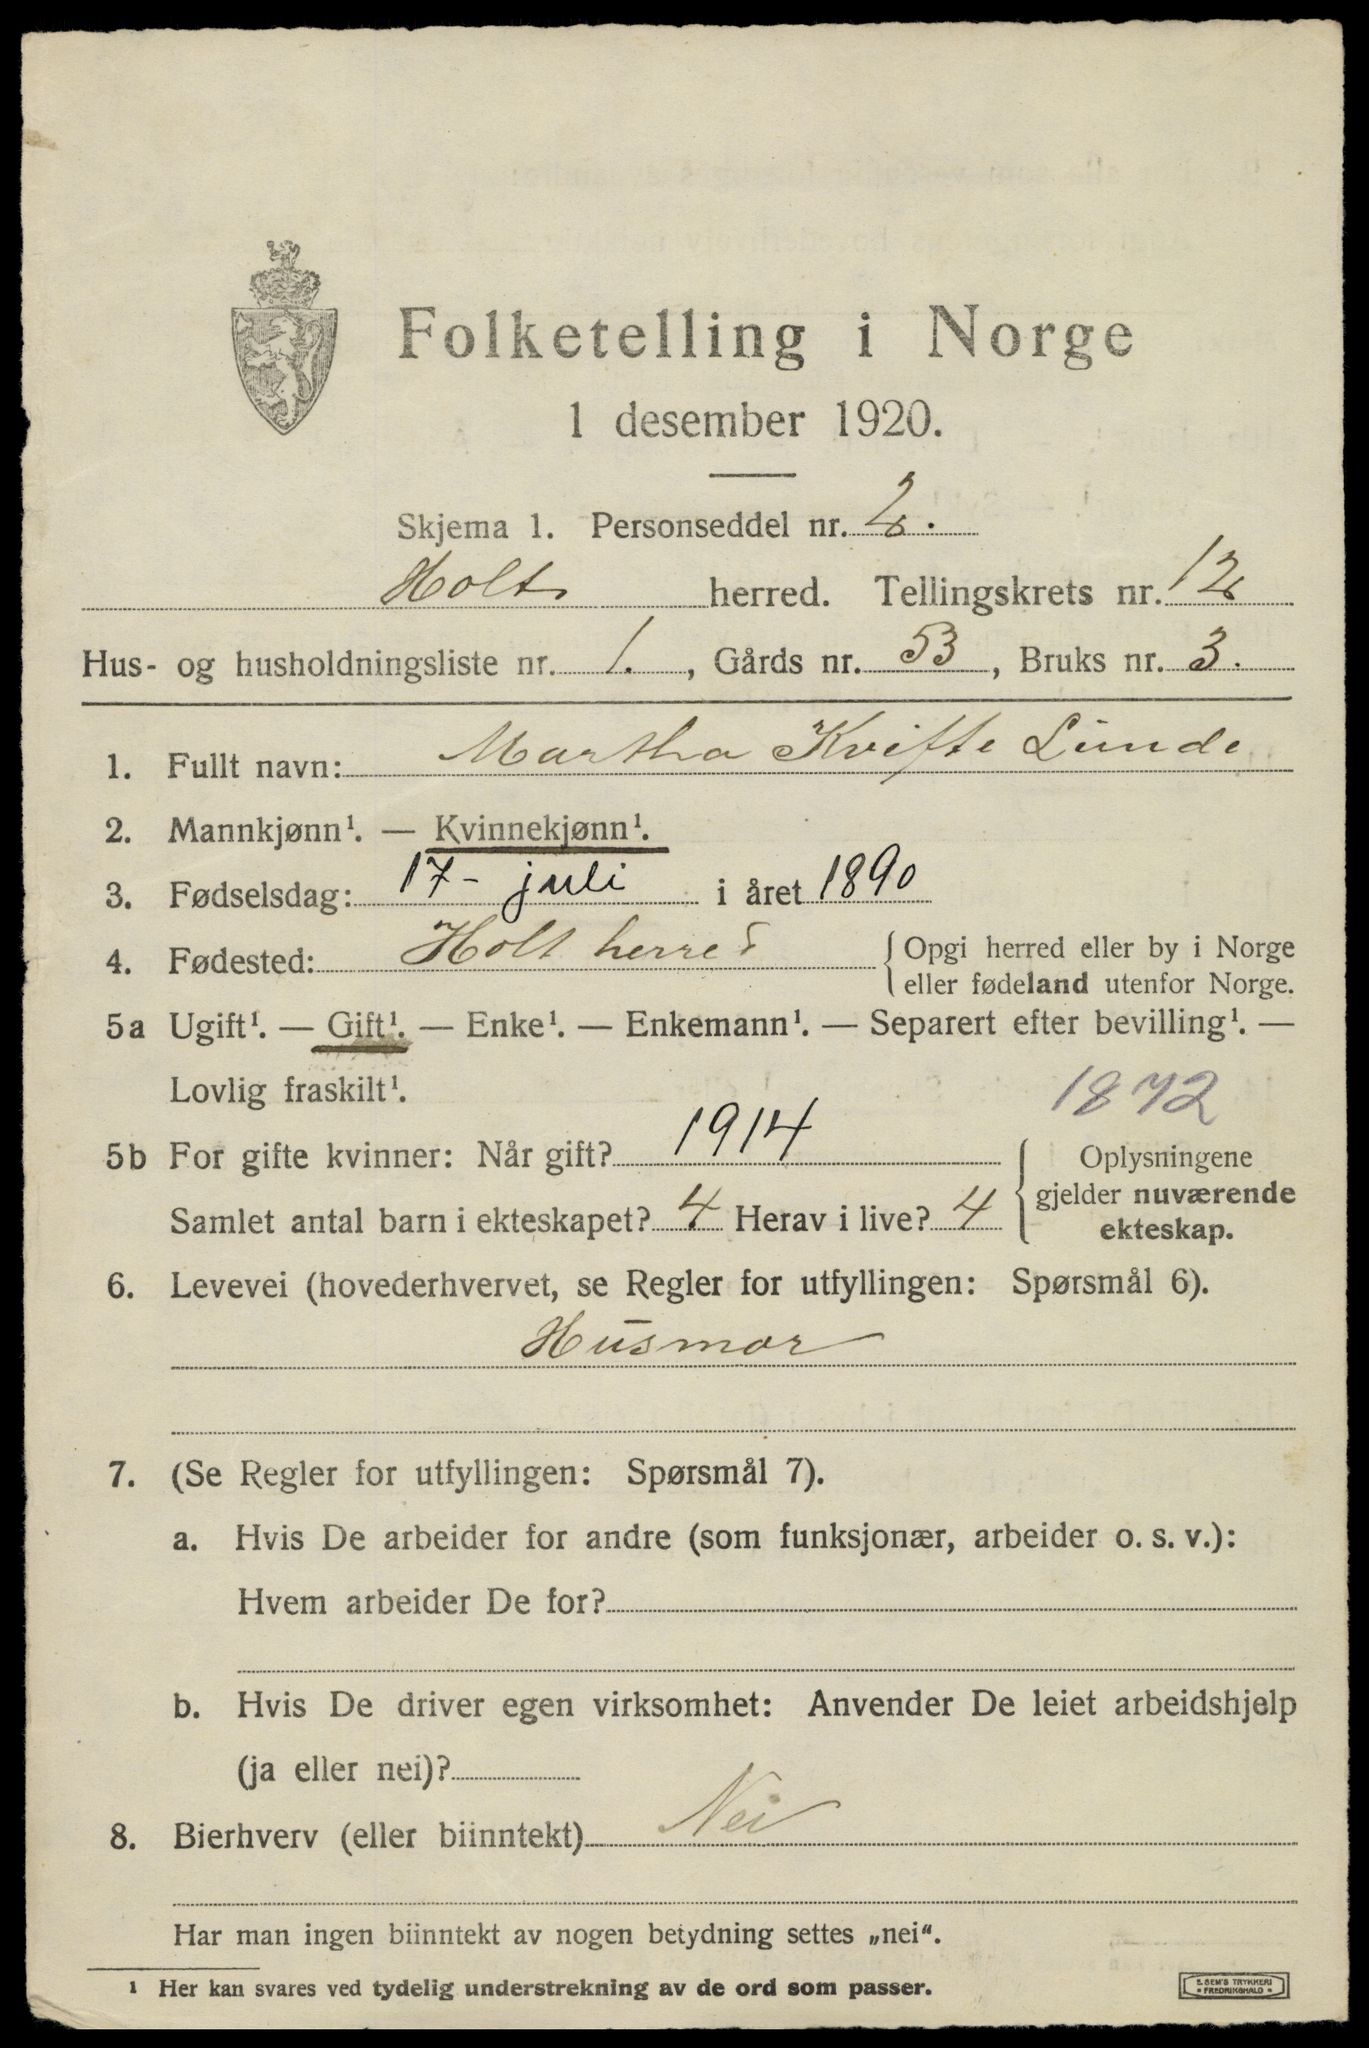 Folketelling i Norge
1 desember 1920.
Skjema 1. Personseddel nr. 2.
Holt herred. Tellingskrets nr. 12
Hus- og husholdningsliste nr. 1., Gårds nr. 53, Bruks nr. 3.
1. Fullt navn: Martha Kvifte Lunde
2. Mannkjønn¹. — Kvinnekjønn¹.
3. Fødselsdag: 17- juli i året 1890
4. Fødested: Holt herred { Opgi herred eller by i Norge
eller fødeland utenfor Norge.
5a Ugift¹. — Gift¹. — Enke¹. — Enkemann¹. — Separert efter bevilling¹. —
Lovlig fraskilt¹.
1872
5b For gifte kvinner: Når gift? 1914
Samlet antal barn i ekteskapet? 4 Herav i live? 4
Oplysningene
gjelder nuværende
ekteskap.
6. Levevei (hovederhvervet, se Regler for utfyllingen: Spørsmål 6).
Husmor
7. (Se Regler for utfyllingen: Spørsmål 7).
a. Hvis De arbeider for andre (som funksjonær, arbeider o. s. v.):
Hvem arbeider De for?
b. Hvis De driver egen virksomhet: Anvender De leiet arbeidshjelp
(ja eller nei)?
8. Bierhverv (eller biinntekt) Nei
Har man ingen biinntekt av nogen betydning settes „nei“.
¹ Her kan svares ved tydelig understrekning av de ord som passer.
E. SEM'S TRYKKERI
FREDRIKSHALD